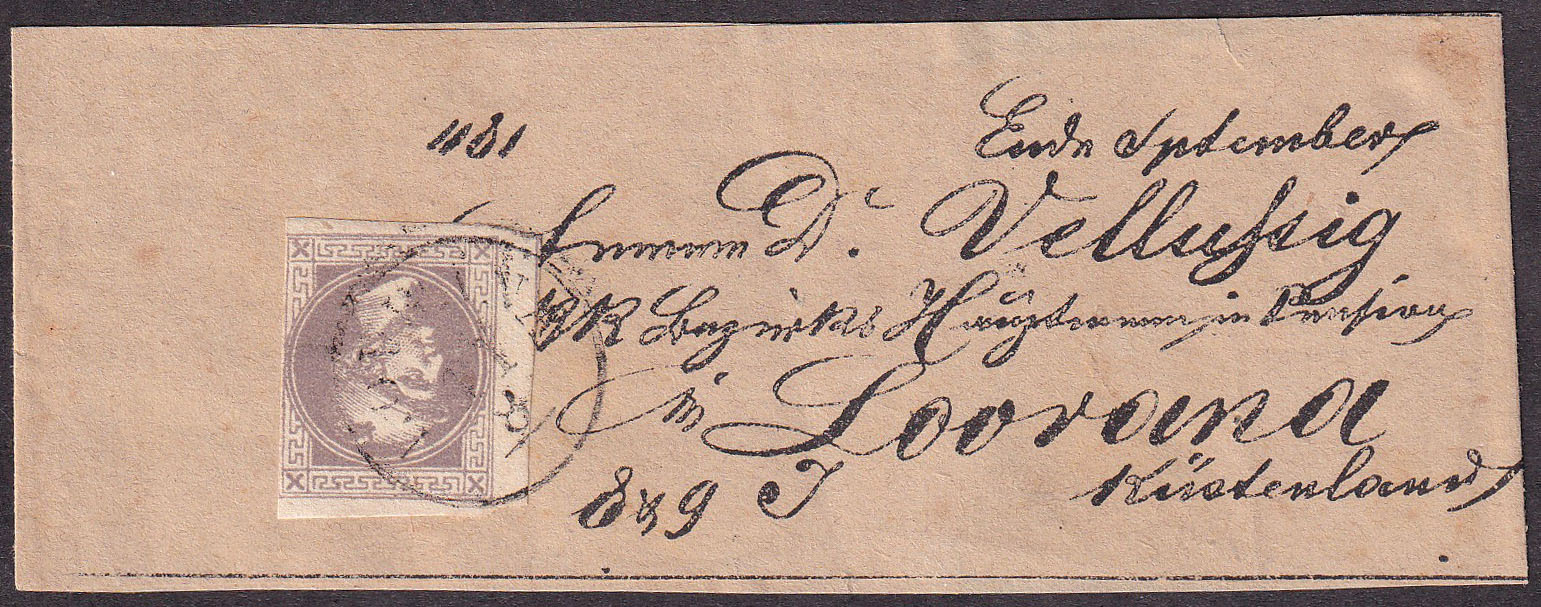 Ende Sptember
1181
Herrn Dr. Vellussig
kk Bezirks Hauptmann in Pension
in Lovrana
Küstenland